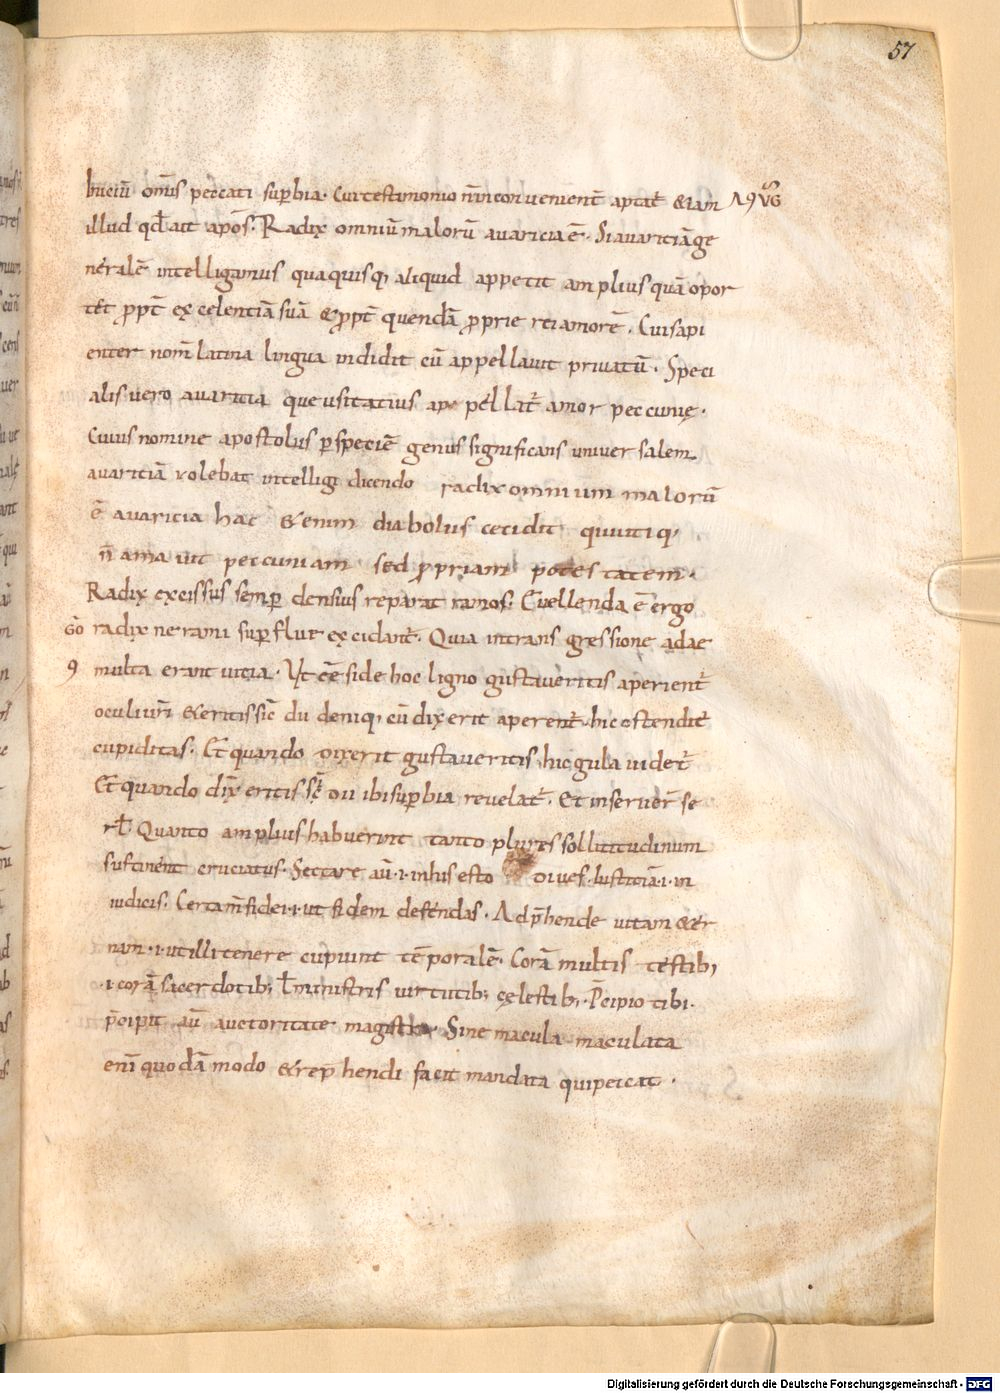 57
buciū om̄s peccati sup̄bia. Cui testimonio n̄ inconvenient̄ aptat̄ & iam AGUS
illud qd̄ ait apos̄. Radix omniū malorū avaricia ē. Si avariciā ge
neralē intelligamus qua quisq; aliquid appetit amplius quā opor
tet ꝓpt̄ excelentiā suā & ꝓpt̄ quendā ꝓprie rei amorē. Cui sapi
enter nom̄ latina lingua indidit cū appellavit privatū. Speci
alis vero avaricia que usitatius appellat̄ amor peccunię.
Cuius nomine apostolus ꝑ speciē genus significans universalem
avariciā volebat intelligi dicendo radix omnium malorū
ē avaricia hac & enim diabolus cecidit qui utiq;
n̄ amavit peccuniam sed ꝓpriam potestatem.
Radix excissus semꝑ densius reparat ramos. Evellenda ē ergo
GŌ radix ne rami suꝑflue excidant̄. Quia in transgressione adae
9 multa erant vicia. Ut ē side hoc ligno gustaveritis aperient̄
oculi ur̄i & eritis sic̄ dii deniq; cū dixerit aperent̄. hic ostendit̄
cupiditas. Et quando dixerit gustaveritis. hic gula videt̄
Et quando dix̄ eritis sic̄ dii ibi suꝑbia revelat̄. Et inserver̄ se
rt̄ Quanto amplius habuerint tanto plures sollititudinum
sustinent cruciatus. Sectare aū .i. in his esto dives. Iusticiā .i. in
iudiciis. Certam̄ fidei .i. ut fidem defendas. Adp̄hende vitam & er
nam .i. ut illi tenere cupiunt tēporalē. Corā multis testib;
.i. corā sacerdotib; t̄ ministris virtutib; cęlestib;. P̄cipio tibi.
p̄cipit aū auctoritate magistra. Sine macula maculata
eni quodā modo & rep̄hendi facit mandata qui peccat.
Digitalisierung gefördert durch die Deutsche Forschungsgemeinschaft - DFG